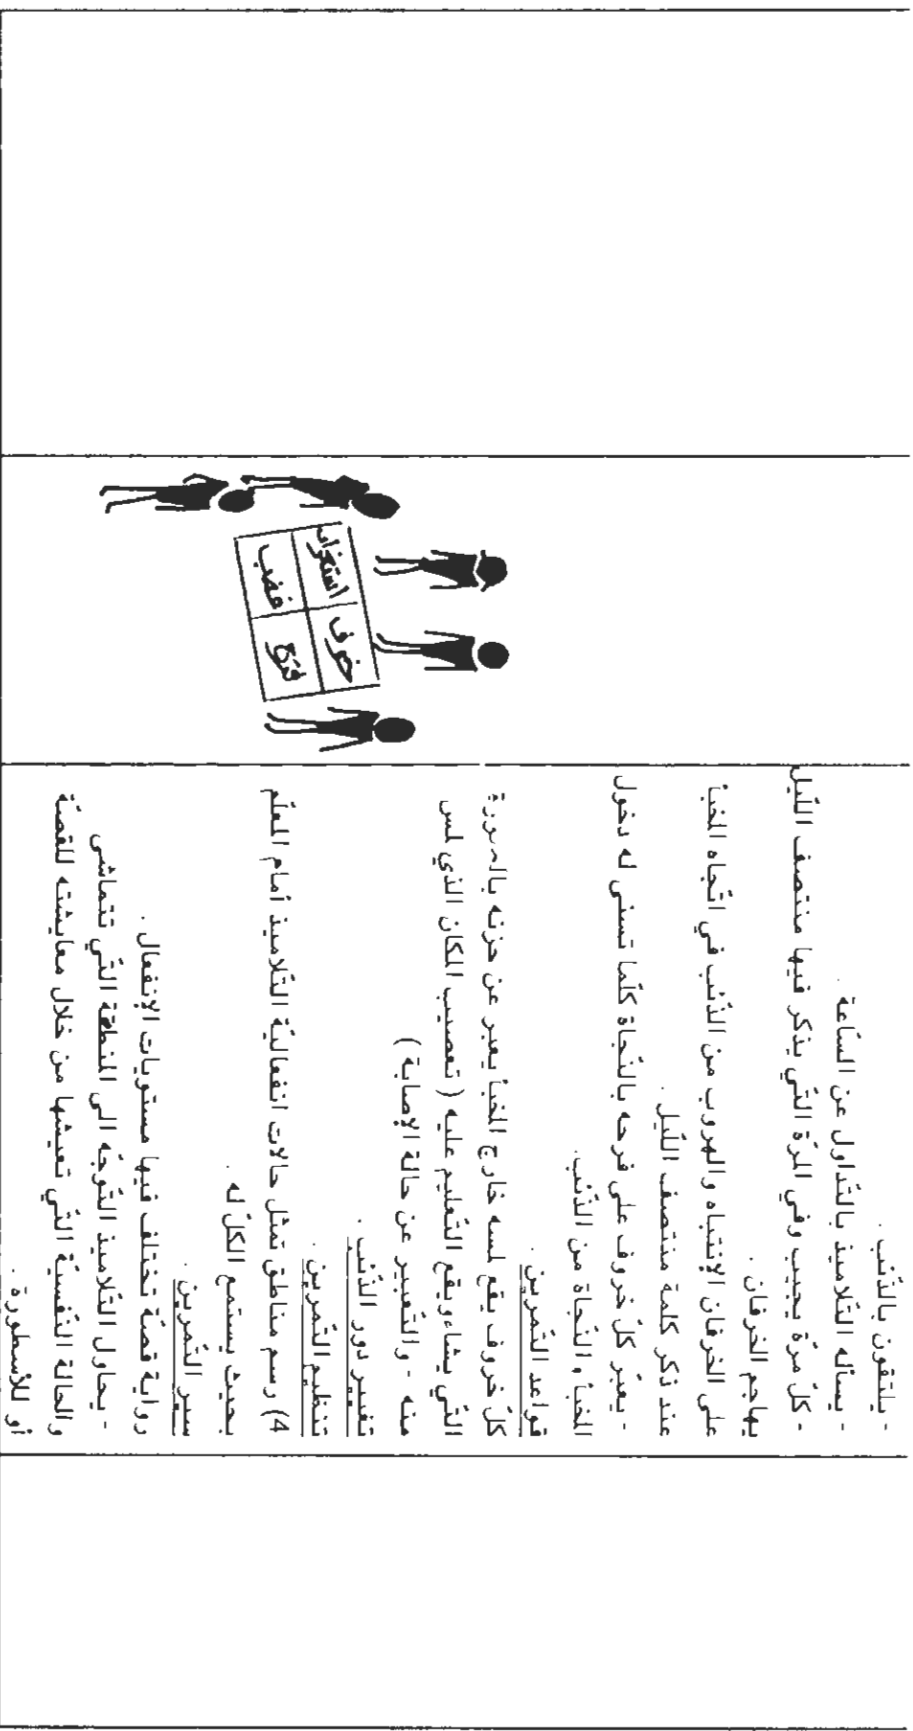 - يلتقون بالذّئب .
- يسأله التّلاميذ بالتّداول عن السّاعة .
- كلّ مرّة يجيب وفي المرّة التّي يذكر فيها منتصف اللّيل
يهاجم الخرفان .
على الخرفان الإنتباه والهروب من الذّئب في اتّجاه المخبأ
عند ذكر كلمة منتصف اللّيل .
- يعبّر كلّ خروف على فرحه بالنّجاة كلّما تسنى له دخول
المخبأ والنّجاة من الذّئب.
قواعد التّمرين .
كلّ خروف يقع لمسه خارج المخبأ يعبر عن حزنه بالصورة
التّي يشاء ويقع التّعليم عليه ( تعصيب المكان الذي لمس
منه - والتّعبير عن حالة الإصابة )
تغيير دور الذّئب .
تنظيم التّمرين .
4) رسم مناطق تمثل حالات انفعاليّة التّلاميذ أمام المعلّم
بحيث يستمع الكلّ له .
سير التّمرين .
رواية قصّة تختلف فيها مستويات الإنفعال .
- يحاول التّلاميذ التّوجّه الى المنطقة التّي تتماشى
والحالة النّفسيّة التّي تعيشها من خلال معايشته للقصّة
أو للأسطورة .
استغراب
خوف
غضب
فرح